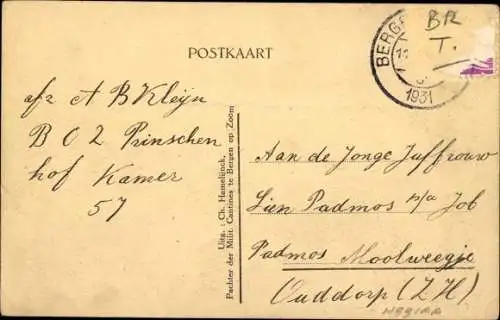 POSTKAART
BERGE
1931
BR
T.
afz A B Kleijn
B O 2 Prinschen
hof Kamer
57
Uitg.: Ch. Hamelijnck,
Pachter der Milit. Cantines te Bergen op Zoom
Aan de Jonge Juffrouw
Lien Padmos p/a Job
Padmos Moolweegje
Ouddorp (Z H)